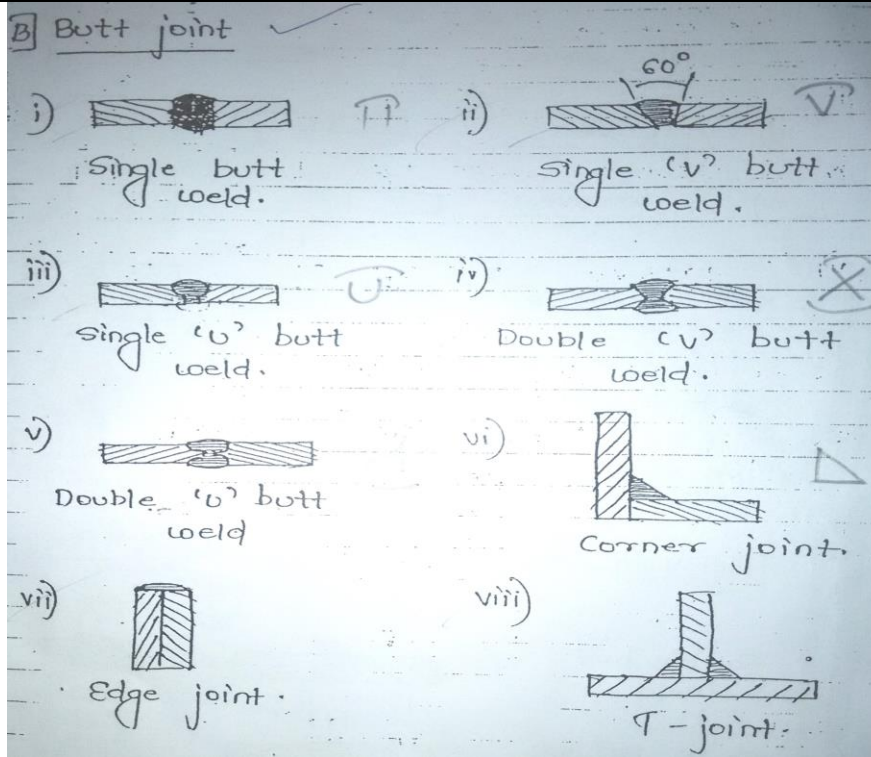 B] Butt joint
i)
Single butt
weld.
ii)
60°
Single 'V' butt
weld.
iii)
Single 'U' butt
weld.
iv)
Double 'V' butt
weld.
v)
Double 'U' butt
weld
vi)
Corner joint.
vii)
Edge joint.
viii)
T-joint.